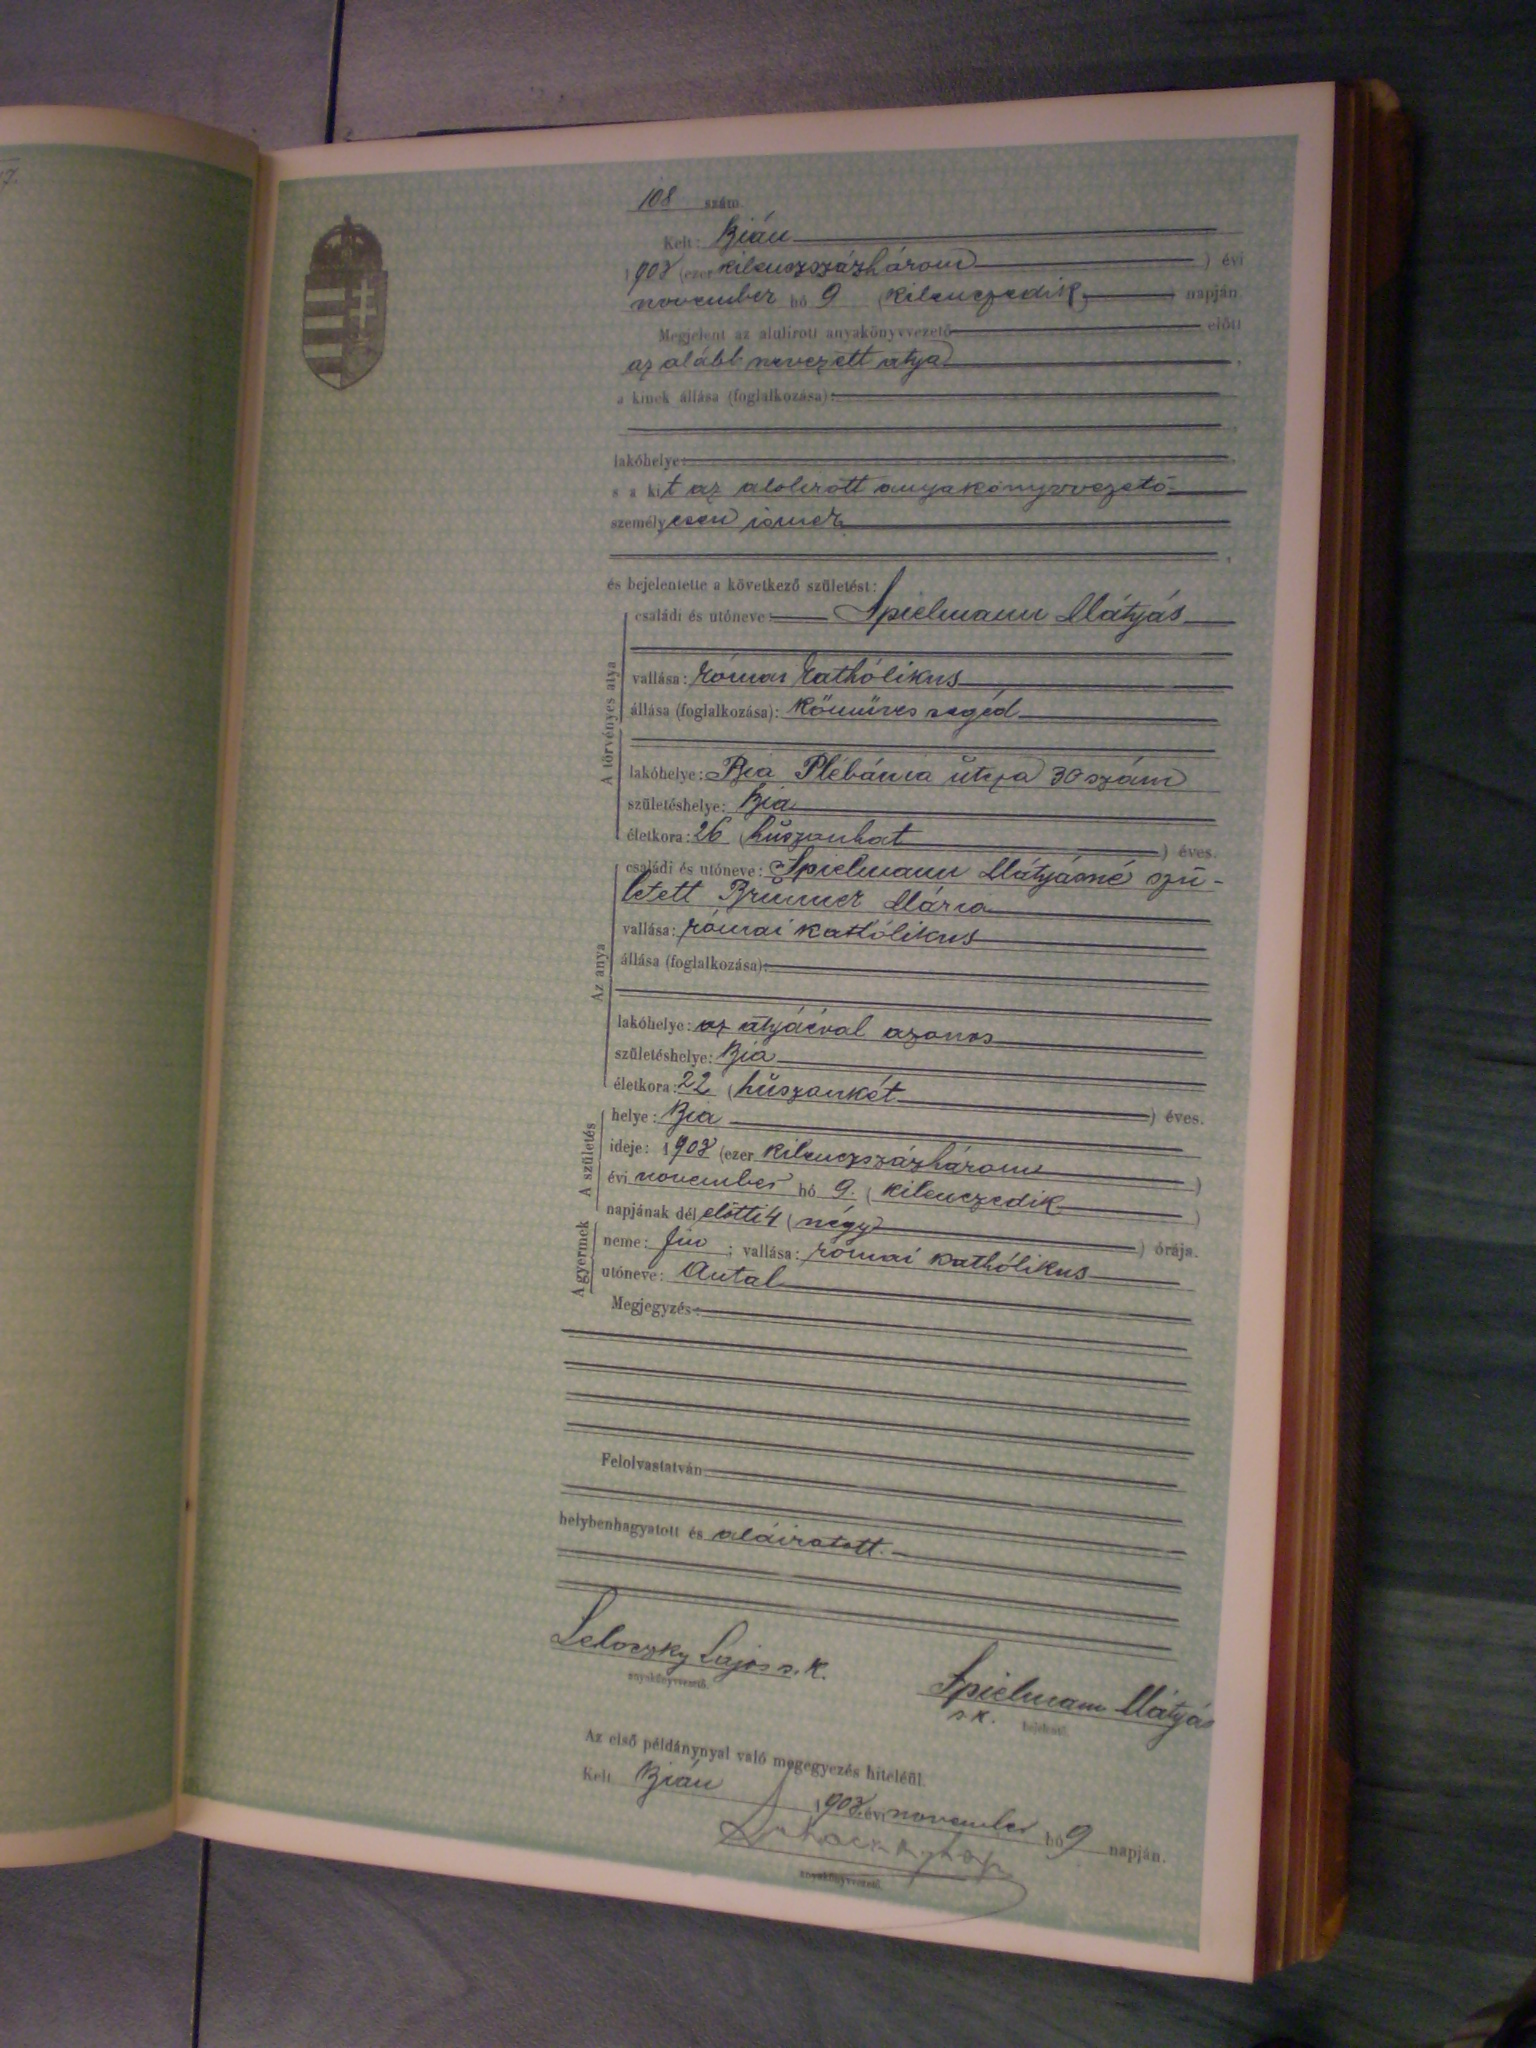 7.
108 szám
Kelt: Bián
1903 (ezer kilenczszázhárom ) évi
november hó 9 (kilenczedik ) napján
Megjelent az alulirott anyakönyvvezető előtt
az alább nevezett atya ,
a kinek állása (foglalkozása):
lakóhelye: ,
s a kit az alolirott anyakönyvvezető
személyesen ismer
,
és bejelentette a következő születést:
A törvényes atya
családi és utóneve: Spielmann Mátyás
vallása: római kathólikus
állása (foglalkozása): kőmüves segéd
lakóhelye: Bia Plébánia útcza 30 szám
születéshelye: Bia
életkora: 26 (húszonhat ) éves.
Az anya
családi és utóneve: Spielmann Mátyásné szü-
letett Brunner Mária
vallása: római kathólikus
állása (foglalkozása):
lakóhelye: az atyáéval azonos
születéshelye: Bia
életkora: 22 (húszonkét ) éves.
A születés
helye: Bia
ideje: 1903 (ezer kilenczszázhárom )
évi november hó 9. (kilenczedik )
napjának dél előtti 4 (négy ) órája.
A gyermek
neme: fiu ; vallása: római kathólikus
utóneve: Antal
Megjegyzés:
Felolvastatván
helybenhagyatott és aláiratott.
Lajos s. k.
anyakönyvvezető.
Spielmann Mátyás
s. k. bejelentő.
Az első példánynyal való megegyezés hiteléül.
Kelt Bián 1903 évi november hó 9 napján.
anyakönyvvezető.